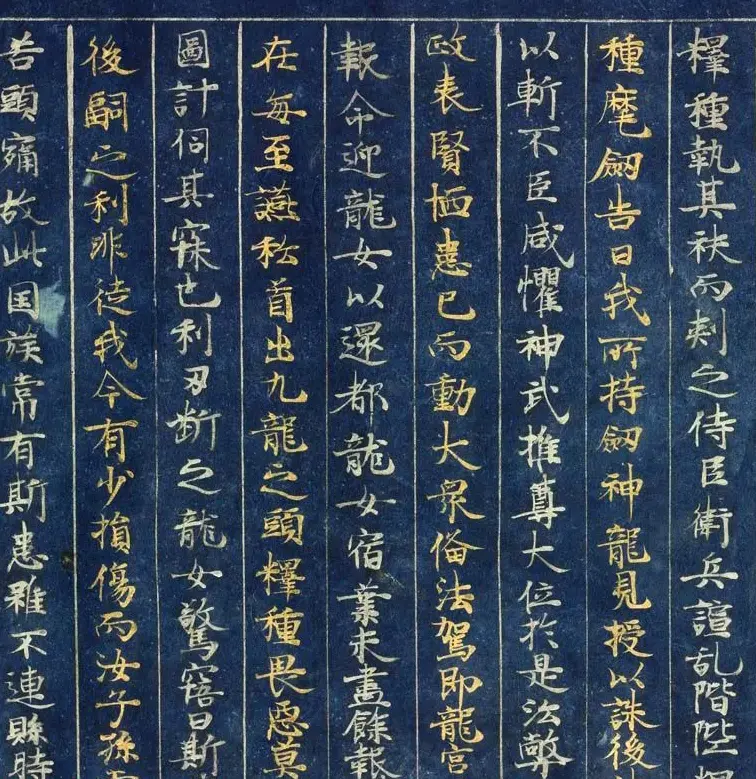 釋種執其袂而刾之侍臣衛兵諠乱階陛
種麾劔告曰我所持劔神龍見授以誅後
以斬不臣咸懼神武推尊大位於是㳒弊
政表賢恤患已而動大衆俻法駕即龍宮
報命迎龍女以還都龍女宿業未盡餘報
在每至䜩私首出九龍之頭釋種畏惡莫
圖計伺其寐也利刃断之龍女驚寤曰斯
後嗣之利非徒我今有少損傷而汝子孫
苦頭痛故此国族常有斯患雖不連緜時